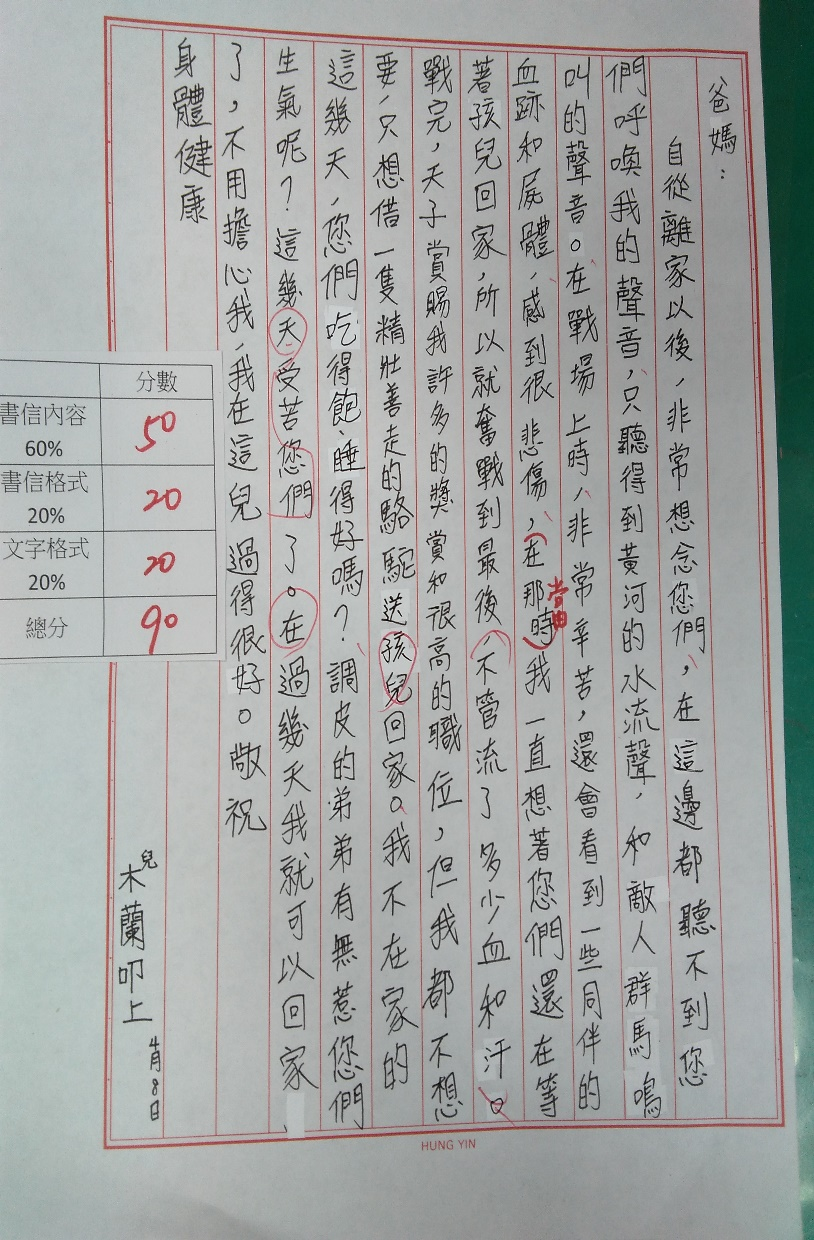 爸媽：
自從離家以後，非常想念您們，在這邊都聽不到您
們呼喚我的聲音，只聽得到黃河的水流聲，和敵人群馬鳴
叫的聲音。在戰場上時，非常辛苦，還會看到一些同伴的
血跡和屍體，感到很悲傷，在那時我一直想著您們還在等
當
著孩兒回家，所以就奮戰到最後，不管流了多少血和汗。
戰完，天子賞賜我許多的獎賞和很高的職位，但我都不想
要，只想借一隻精壯善走的駱駝送孩兒回家。我不在家的
這幾天，您們吃得飽、睡得好嗎？調皮的弟弟有無惹您們
生氣呢？這幾天受苦您們了。在過幾天我就可以回家
了，不用擔心我，我在這兒過得很好。敬祝
身體健康
兒木蘭叩上 4月8日
分數
書信內容 60% 50
書信格式 20% 20
文字格式 20% 20
總分 90
HUNG YIN